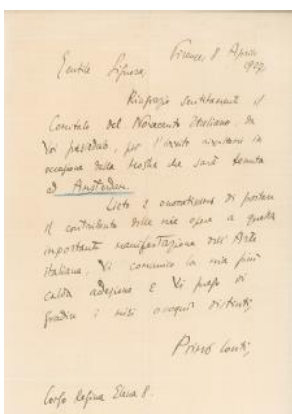 Firenze, 8 Aprile
1927
Gentile Signora,
Ringrazio sentitamente il
Comitato del Novecento Italiano, da
Voi presieduto, per l'invito rivoltomi in
occasione della Mostra che sarà tenuta
ad Amsterdam.
Lieto e onoratissimo di portare
il contributo delle mie opere a quella
importante manifestazione dell'Arte
italiana, Vi comunico la mia più
calda adesione e Vi prego di
gradire i miei ossequi distinti,
Primo Conti,
Corso Regina Elena 8.